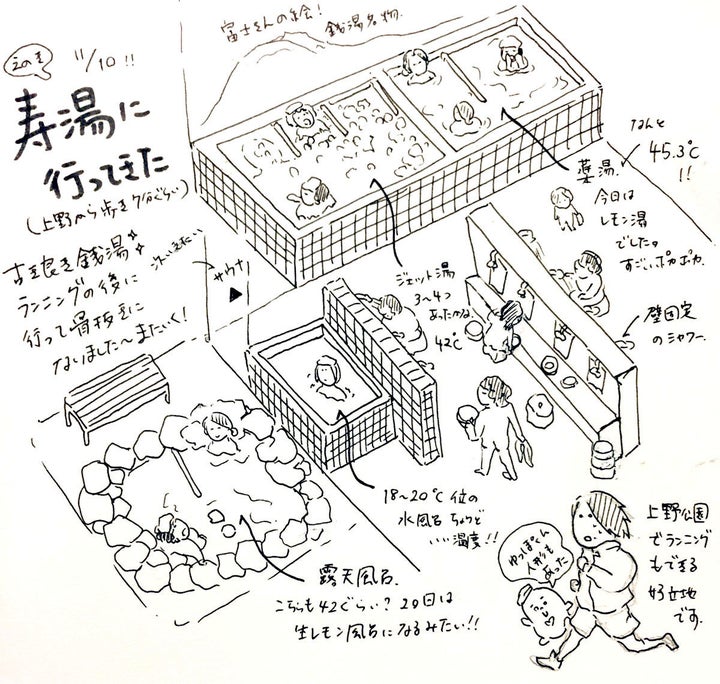 えのき
11/10!!
寿湯に
行ってきた
(上野から歩き7分ぐらい)
古き良き銭湯
ランニングの後に
行って骨抜きに
なりました〜またいく!
富士さんの絵!
銭湯名物。
サウナ
ジェット湯
3〜4つ
あったかな。
42℃
薬湯。
なんと
45.3℃
!!
今日は
レモン湯
でした。
すごいポカポカ。
壁固定
のシャワー。
18〜20℃位の
水風呂 ちょうど
いい温度!!
露天風呂。
こちらも42ぐらい?20日は
生レモン風呂になるみたい!!
ゆっぽくん
人形も
あった
上野公園
でランニング
もできる
好立地
です。